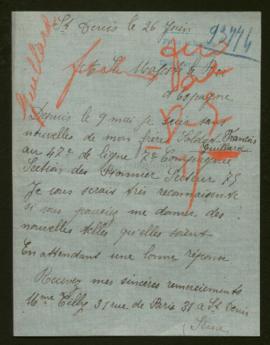 St Denis le 26 Juin
93774
Guillard
Sa Majesté le Roi
d'Espagne
Depuis le 9 mai je suis sans
nouvelles de mon frère Soldat François
Guillard
au 47e de ligne 7e Compagnie
Section des Secteur 75
Je vous serais très reconnaissante
si vous pouviez me donner des
nouvelles telles qu'elles soient
En attendant une bonne réponse
Recevez mes sincères remerciements
Mme 31 rue de Paris 31 à St Denis
Seine